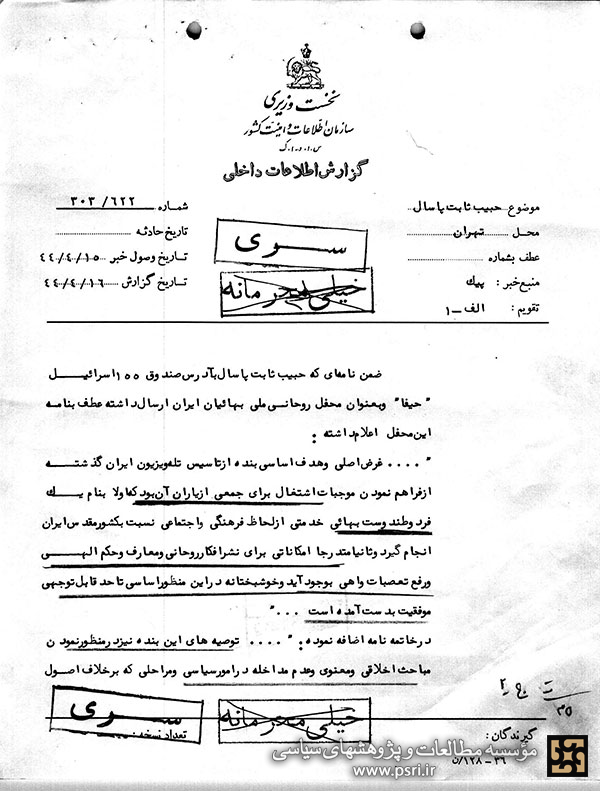 نخست وزیری
سازمان اطلاعات و امنیت کشور
س.ا.و.ا.ک
گزارش اطلاعات داخلی
موضوع حبیب ثابت پاسال
شماره ۳۰۳/۶۲۲
محل تهران
تاریخ حادثه
عطف بشماره
تاریخ وصول خبر ۴۴/۴/۱۵
منبع خبر : پیک
تاریخ گزارش ۴۴/۴/۱۶
تقویم : الف-۱
سری
خیلی محرمانه
ضمن نامه‌ای که حبیب ثابت پاسال بآدرس صندوق ۱۵۵ اسرائیل
"حیفا" وبعنوان محفل روحانی ملی بهائیان ایران ارسال داشته عطف بنامه
این محفل اعلام داشته :
".... غرض اصلی وهدف اساسی بنده از تاسیس تله‌ویزیون ایران گذشته
از فراهم نمودن موجبات اشتغال برای جمعی ازیاران آن بود که اولا بنام یک
فرد وطندوست بهائی خدمتی ازلحاظ فرهنگی واجتماعی نسبت بکشور مقدس ایران
انجام گیرد وثانیا متدرجا امکاناتی برای نشر افکار روحانی ومعارف وحکم الهی
ورفع تعصبات واهی بوجود آید وخوشبختانه در این منظور اساسی تاحد قابل توجهی
موفقیت بدست آمده است ..."
در خاتمه نامه اضافه نموده: ".... توصیه های این بنده نیز در منظور نمودن
مباحث اخلاقی ومعنوی وعدم مداخله در امور سیاسی ومراحلی که برخلاف اصول
سری
خیلی محرمانه
۳۵
گیرندگان :
تعداد نسخه
۳۶-۱۲۸/ن
مؤسسه مطالعات و پژوهشهای سیاسی
www.psri.ir